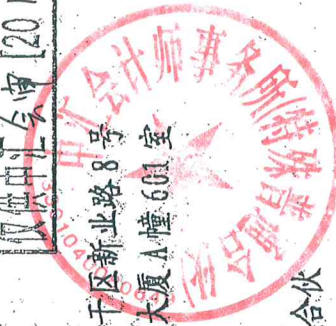 仅供中汇会审[20
干区新业路8号
大厦A幢601室
合伙
中汇会计师事务所(特殊普通合伙)